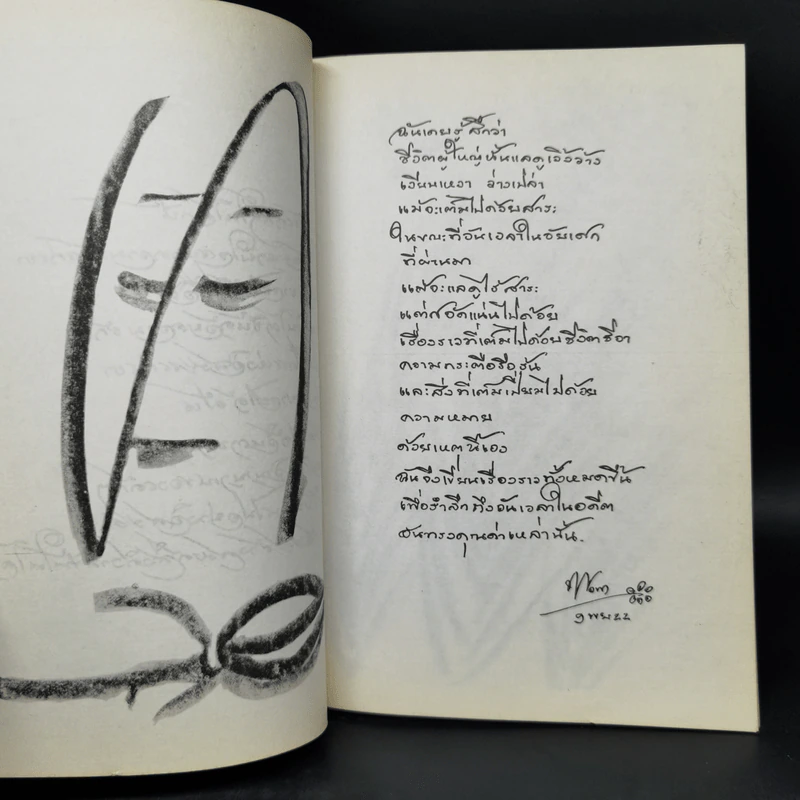 ฉันเคยรู้สึกว่า
ชีวิตผู้ใหญ่นั้นแลดูเวิ้งว้าง
เงียบเหงา ว่างเปล่า
แม้จะเต็มไปด้วยสาระ
ในขณะที่วันเวลาในวัยเด็ก
ที่ผ่านมา
แม้จะแลดูไร้สาระ
แต่อัดแน่นไปด้วย
เรื่องราวที่เต็มไปด้วยชีวิตชีวา
ความกระตือรือร้น
และสิ่งที่เต็มเปี่ยมไปด้วย
ความหมาย
ด้วยเหตุนี้เอง
ฉันจึงเขียนเรื่องราวทั้งหมดขึ้น
เพื่อรำลึกถึงวันเวลาในอดีต
อันทรงคุณค่าเหล่านั้น.
๑ พย ๒๒